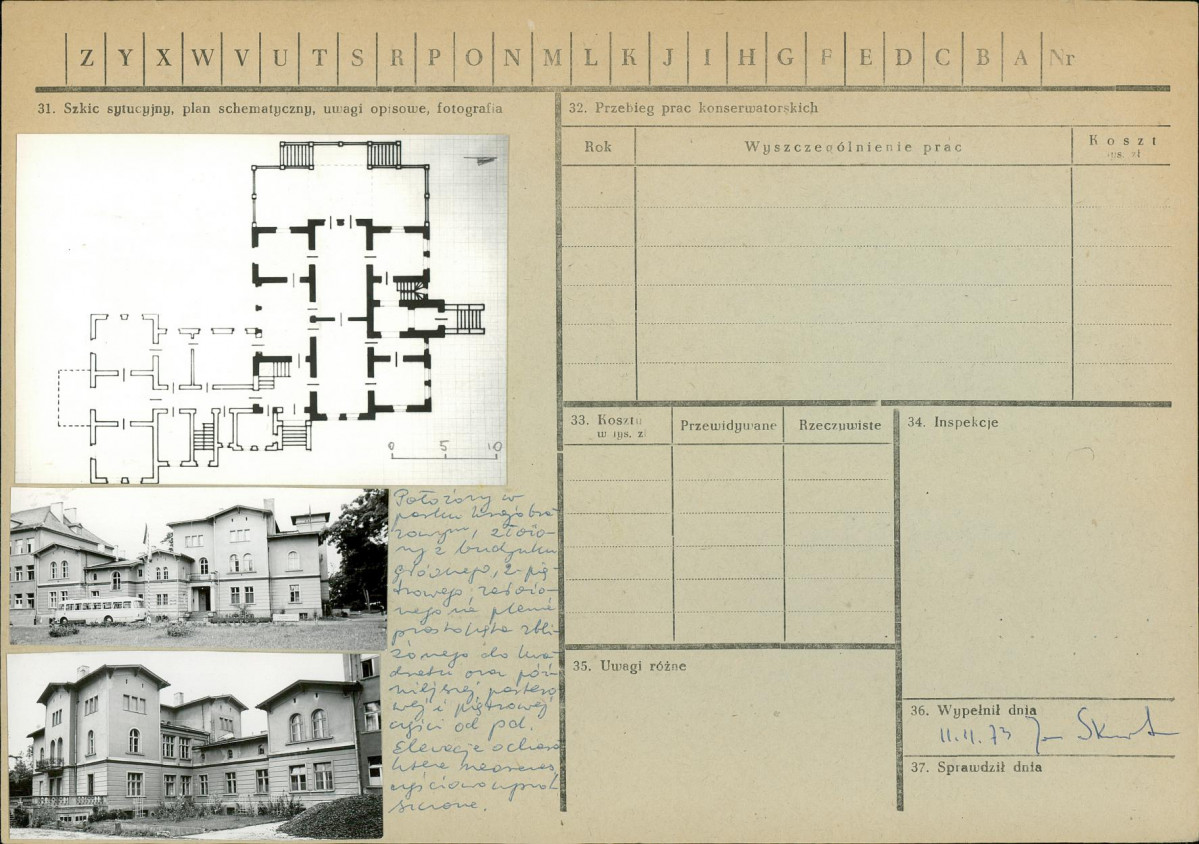 Z Y X W V U T S R P O N M L K J I H G F E D C B A Nr
31. Szkic sytucyjny, plan schematyczny, uwagi opisowe, fotografia
0 5 10
Położony w
parku krajobra
zowym, złożo
ny z budynku
głównego, 2 pię-
trowego, założo-
nego na planie
prostokąta zbli
żonego do kwa
dratu oraz póź-
niejszej, partero
wej i piętrowej
części od pół.
Elewacje o charak
terze
częściowo uprosz
szczone.
32. Przebieg prac konserwatorskich
Rok Wyszczególnienie prac Koszt
tys. zł
33. Koszty
w tys. zł
Przewidywane Rzeczywiste
34. Inspekcje
35. Uwagi różne
36. Wypełnił dnia
11.11.73
37. Sprawdził dnia